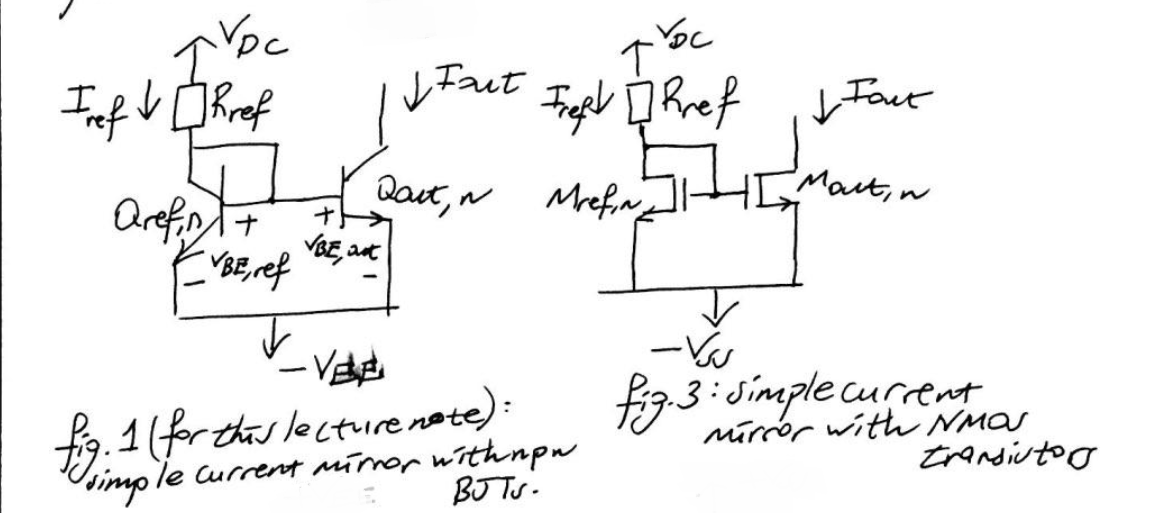 VDC
Iref
Rref
Iout
Qref,n
+
VBE,ref
-
+
VBE,out
-
Qout,n
-VEE
fig. 1 (for this lecture note):
simple current mirror with npn
BJTs.
VDC
Iref
Rref
Iout
Mref,n
Mout,n
-VSS
fig. 3: simple current
mirror with NMOS
transistors